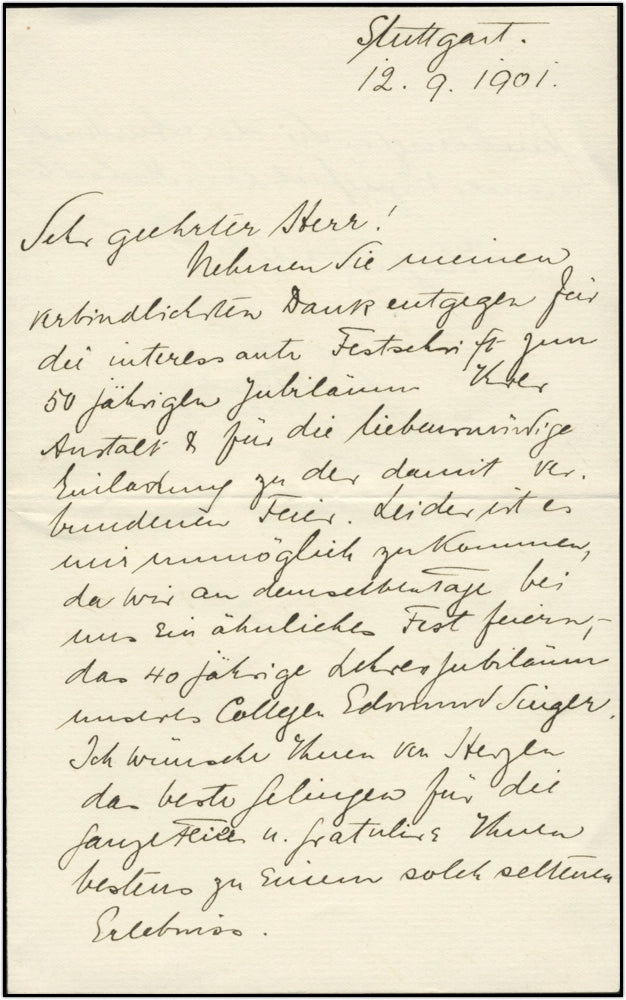 Stuttgart.
12. 9. 1901.
Sehr geehrter Herr!
Nehmen Sie meinen
verbindlichsten Dank entgegen für
die interessante Festschrift zum
50 jährigen Jubiläum Ihrer
Anstalt & für die liebenswürdige
Einladung zu der damit ver-
bundenen Feier. Leider ist es
mir unmöglich zu kommen,
da wir an demselben Tage bei
uns ein ähnliches Fest feiern,-
das 40 jährige Lehrerjubiläum
unseres Collegen Edmund Singer.
Ich wünsche Ihnen von Herzen
das beste Gelingen für die
ganze Feier u. gratulire Ihnen
bestens zu einem solch seltenen
Erlebniss.